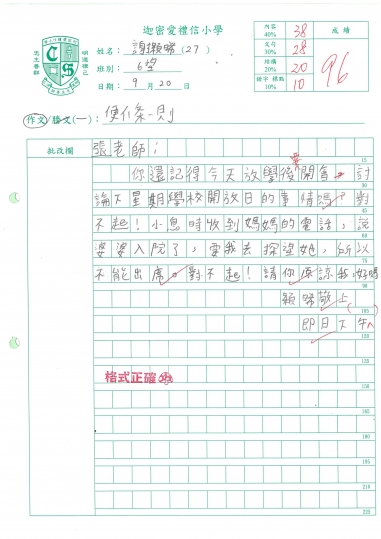 迦密愛禮信小學
明道律己
忠主善群
姓名：謝穎晞(27)
班別：6望
日期：9月20日
內容 40% 38
文句 30% 28
結構 20% 20
錯字 標點 10% 10
成績
96
作文/謄文(一)：便條一則
批改欄
張老師：
15
你還記得今天放學後要開會，討
30
論下星期學校開放日的事情嗎？對
45
不起！小息時收到媽媽的電話，說
60
婆婆入院了，要我去探望她，所以
75
不能出席。對不起！請你原諒我，好嗎
90
穎晞敬上
105
即日下午
120
135
格式正確
150
165
180
195
210
225